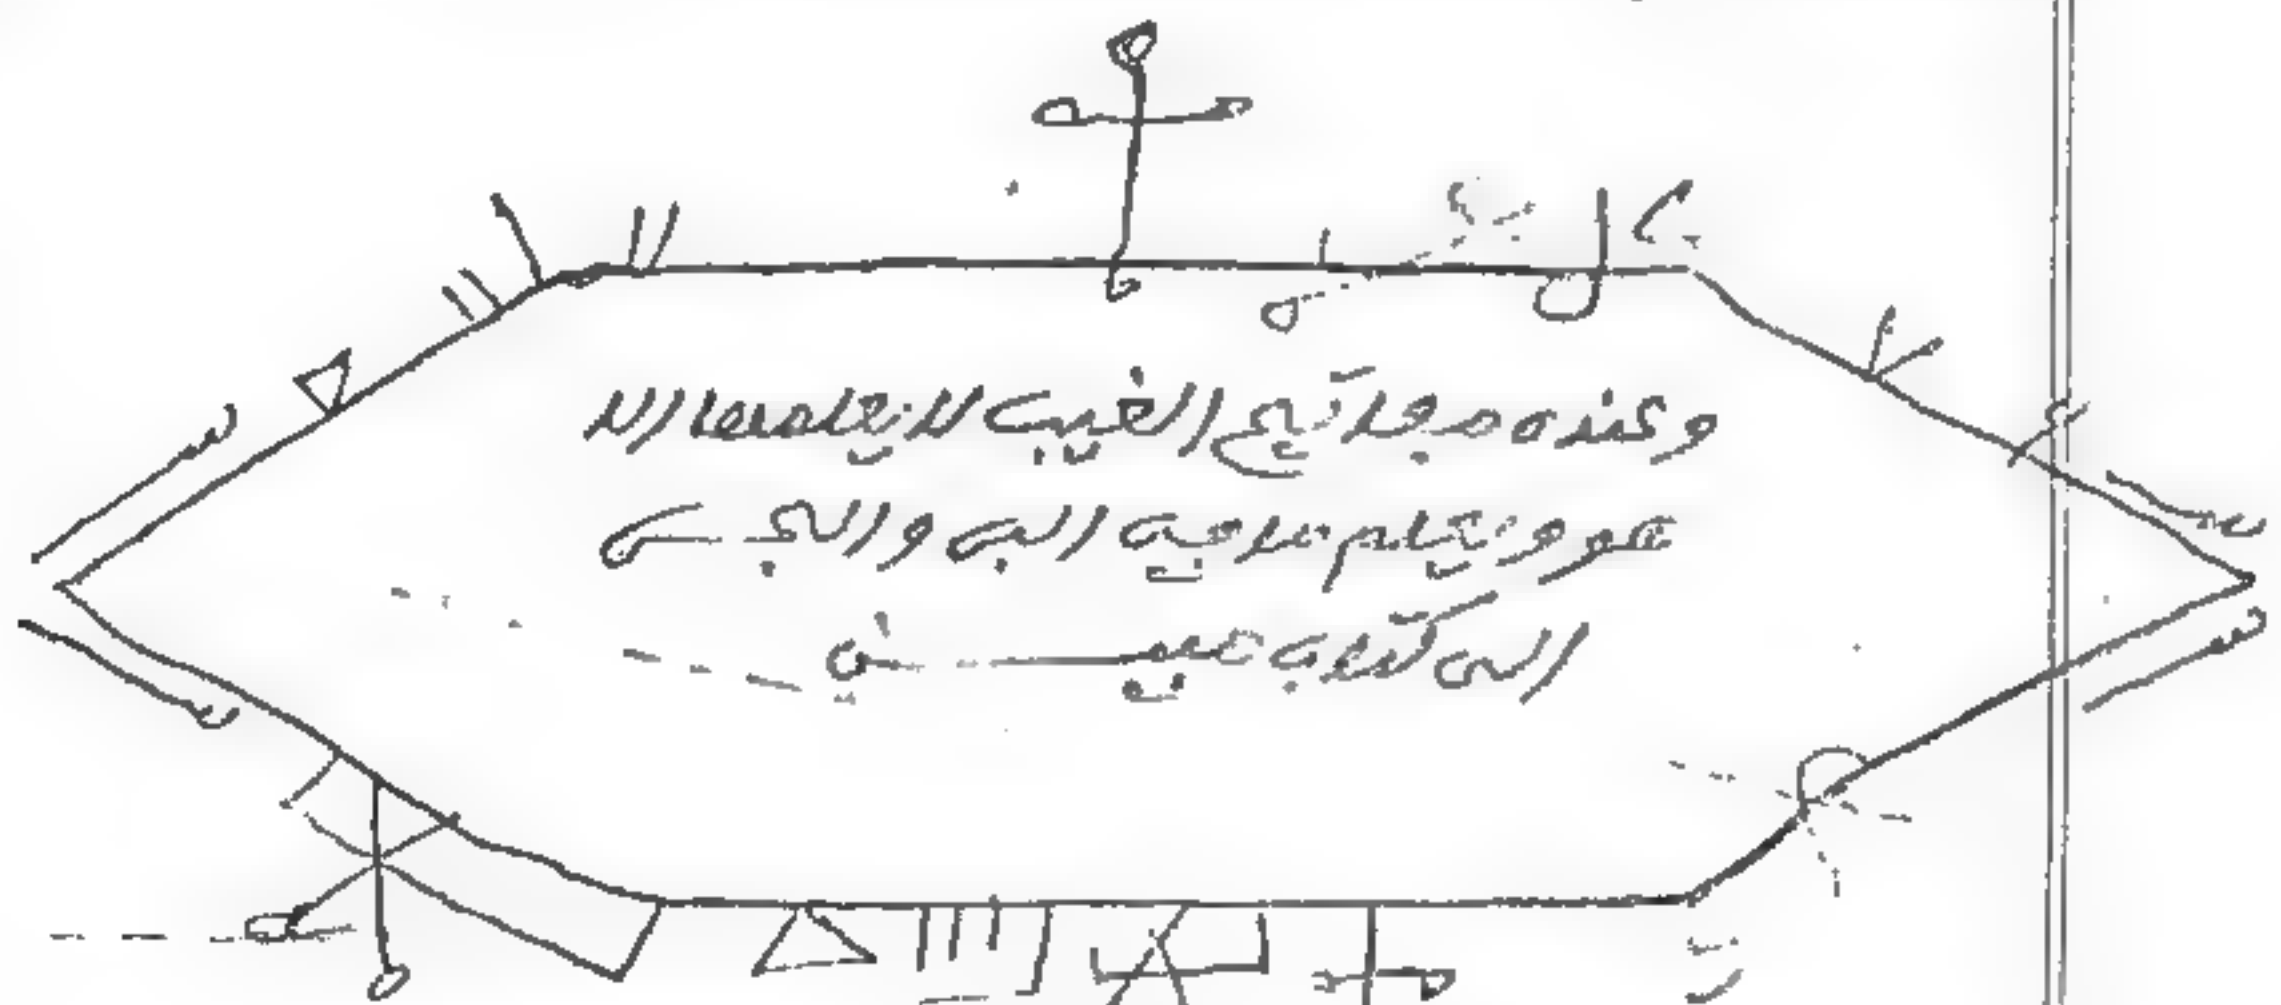 وعنده مفاتح الغيب لا يعلمها الا
هو ويعلم ما في البر والبحر
كتب مبين